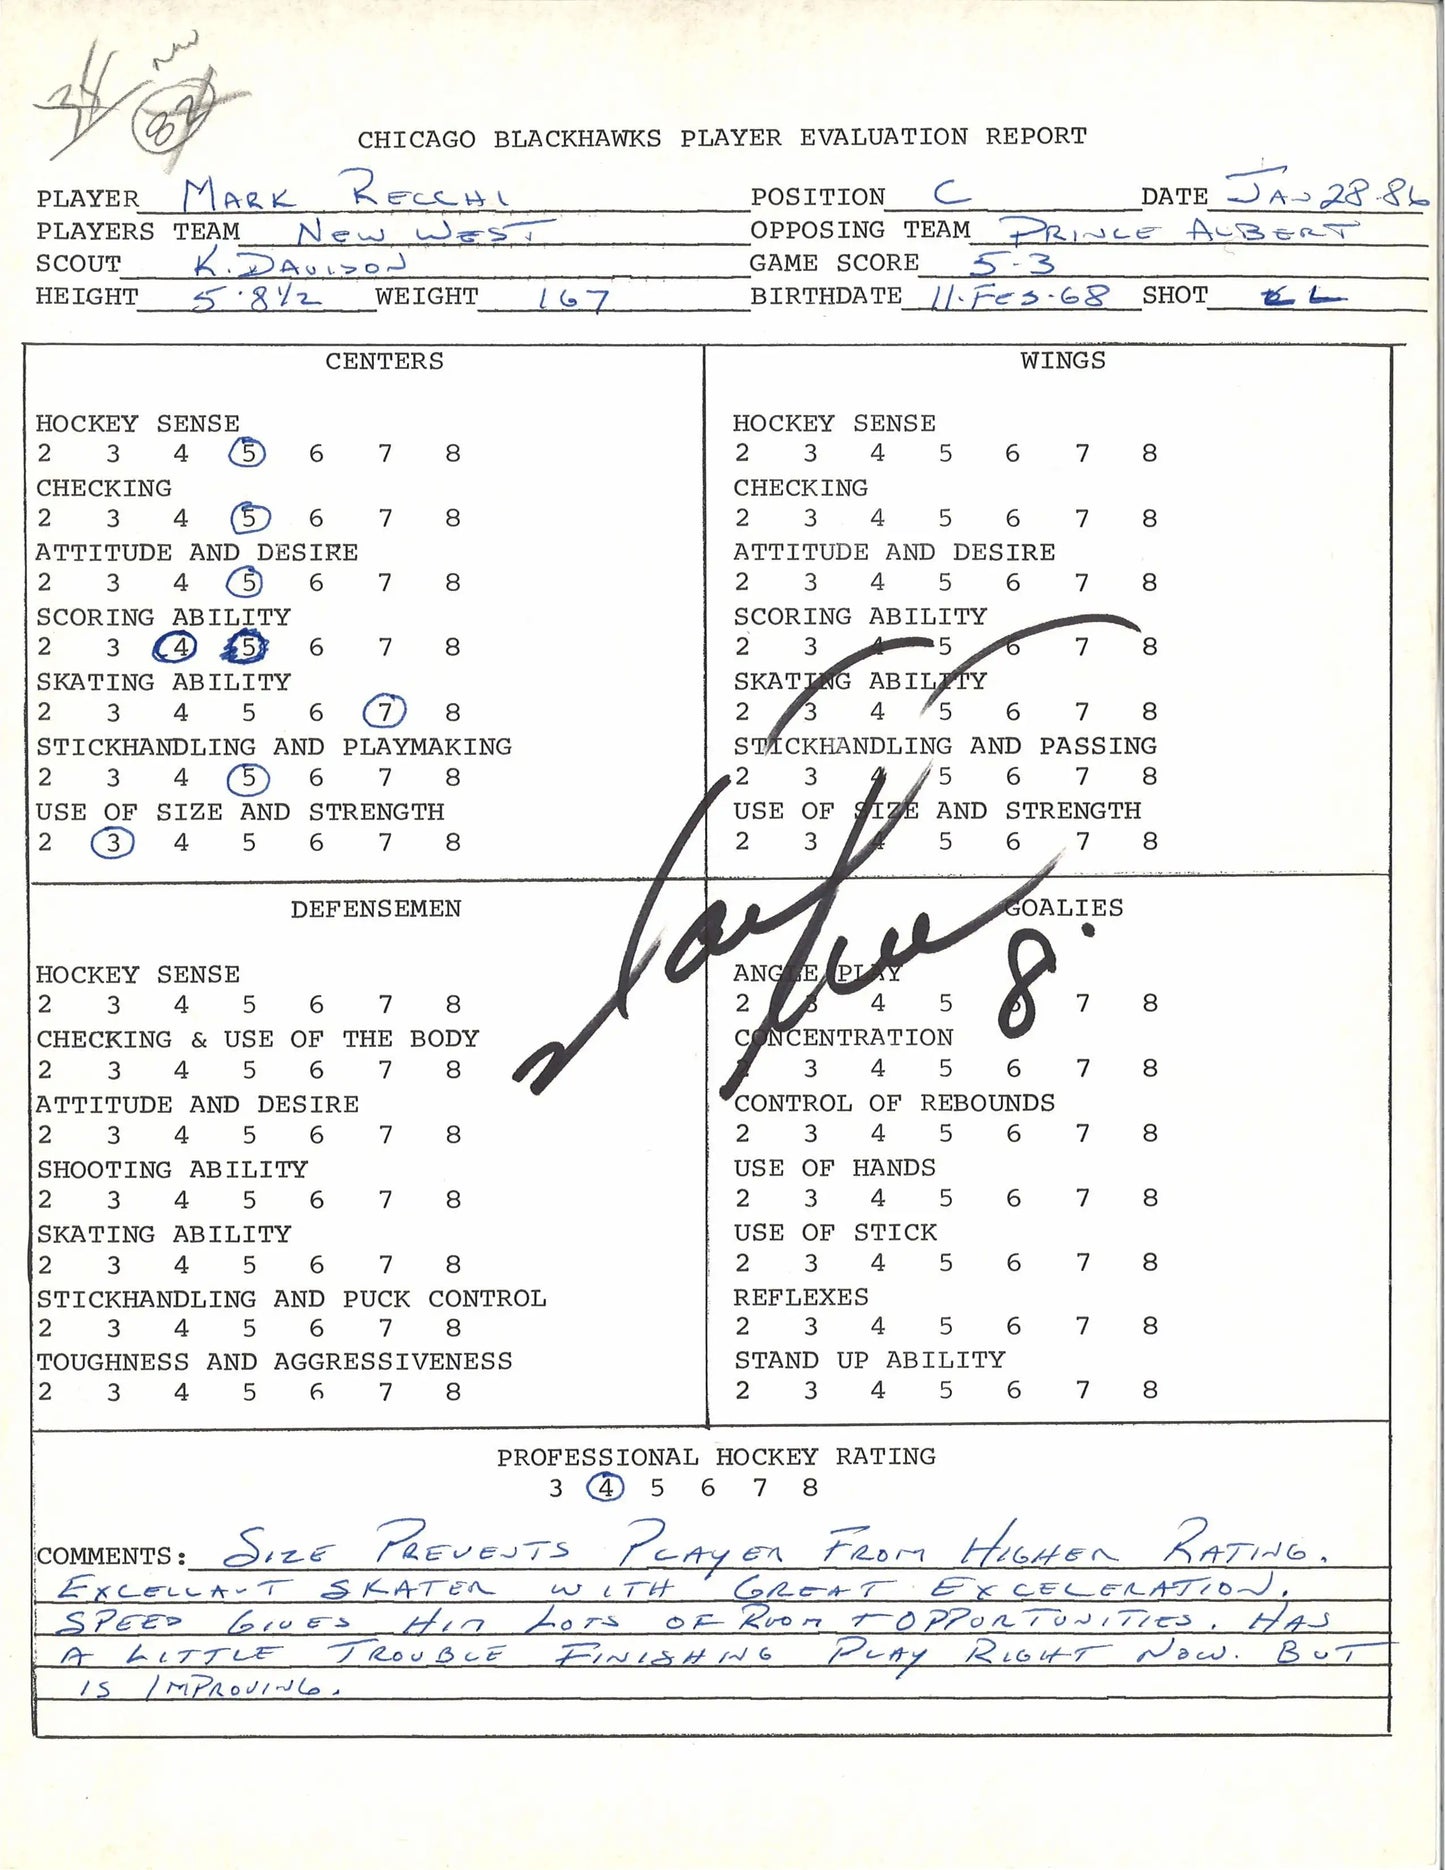 34 NW
82
CHICAGO BLACKHAWKS PLAYER EVALUATION REPORT
PLAYER MARK RECCHI POSITION C DATE JAN 28·86
PLAYERS TEAM NEW WEST OPPOSING TEAM PRINCE ALBERT
SCOUT K. DAVISON GAME SCORE 5-3
HEIGHT 5·8 1/2 WEIGHT 167 BIRTHDATE 11·FEB·68 SHOT L
CENTERS
HOCKEY SENSE
2 3 4 5 6 7 8
CHECKING
2 3 4 5 6 7 8
ATTITUDE AND DESIRE
2 3 4 5 6 7 8
SCORING ABILITY
2 3 4 5 6 7 8
SKATING ABILITY
2 3 4 5 6 7 8
STICKHANDLING AND PLAYMAKING
2 3 4 5 6 7 8
USE OF SIZE AND STRENGTH
2 3 4 5 6 7 8
WINGS
HOCKEY SENSE
2 3 4 5 6 7 8
CHECKING
2 3 4 5 6 7 8
ATTITUDE AND DESIRE
2 3 4 5 6 7 8
SCORING ABILITY
2 3 4 5 6 7 8
SKATING ABILITY
2 3 4 5 6 7 8
STICKHANDLING AND PASSING
2 3 4 5 6 7 8
USE OF SIZE AND STRENGTH
2 3 4 5 6 7 8
DEFENSEMEN
HOCKEY SENSE
2 3 4 5 6 7 8
CHECKING & USE OF THE BODY
2 3 4 5 6 7 8
ATTITUDE AND DESIRE
2 3 4 5 6 7 8
SHOOTING ABILITY
2 3 4 5 6 7 8
SKATING ABILITY
2 3 4 5 6 7 8
STICKHANDLING AND PUCK CONTROL
2 3 4 5 6 7 8
TOUGHNESS AND AGGRESSIVENESS
2 3 4 5 6 7 8
GOALIES
8
ANGLE PLAY
2 3 4 5 6 7 8
CONCENTRATION
2 3 4 5 6 7 8
CONTROL OF REBOUNDS
2 3 4 5 6 7 8
USE OF HANDS
2 3 4 5 6 7 8
USE OF STICK
2 3 4 5 6 7 8
REFLEXES
2 3 4 5 6 7 8
STAND UP ABILITY
2 3 4 5 6 7 8
PROFESSIONAL HOCKEY RATING
3 4 5 6 7 8
COMMENTS: SIZE PREVENTS PLAYER FROM HIGHER RATING.
EXCELLANT SKATER WITH GREAT EXCELERATION.
SPEED GIVES HIM LOTS OF ROOM + OPPORTUNITIES. HAS
A LITTLE TROUBLE FINISHING PLAY RIGHT NOW. BUT
IS IMPROVING.